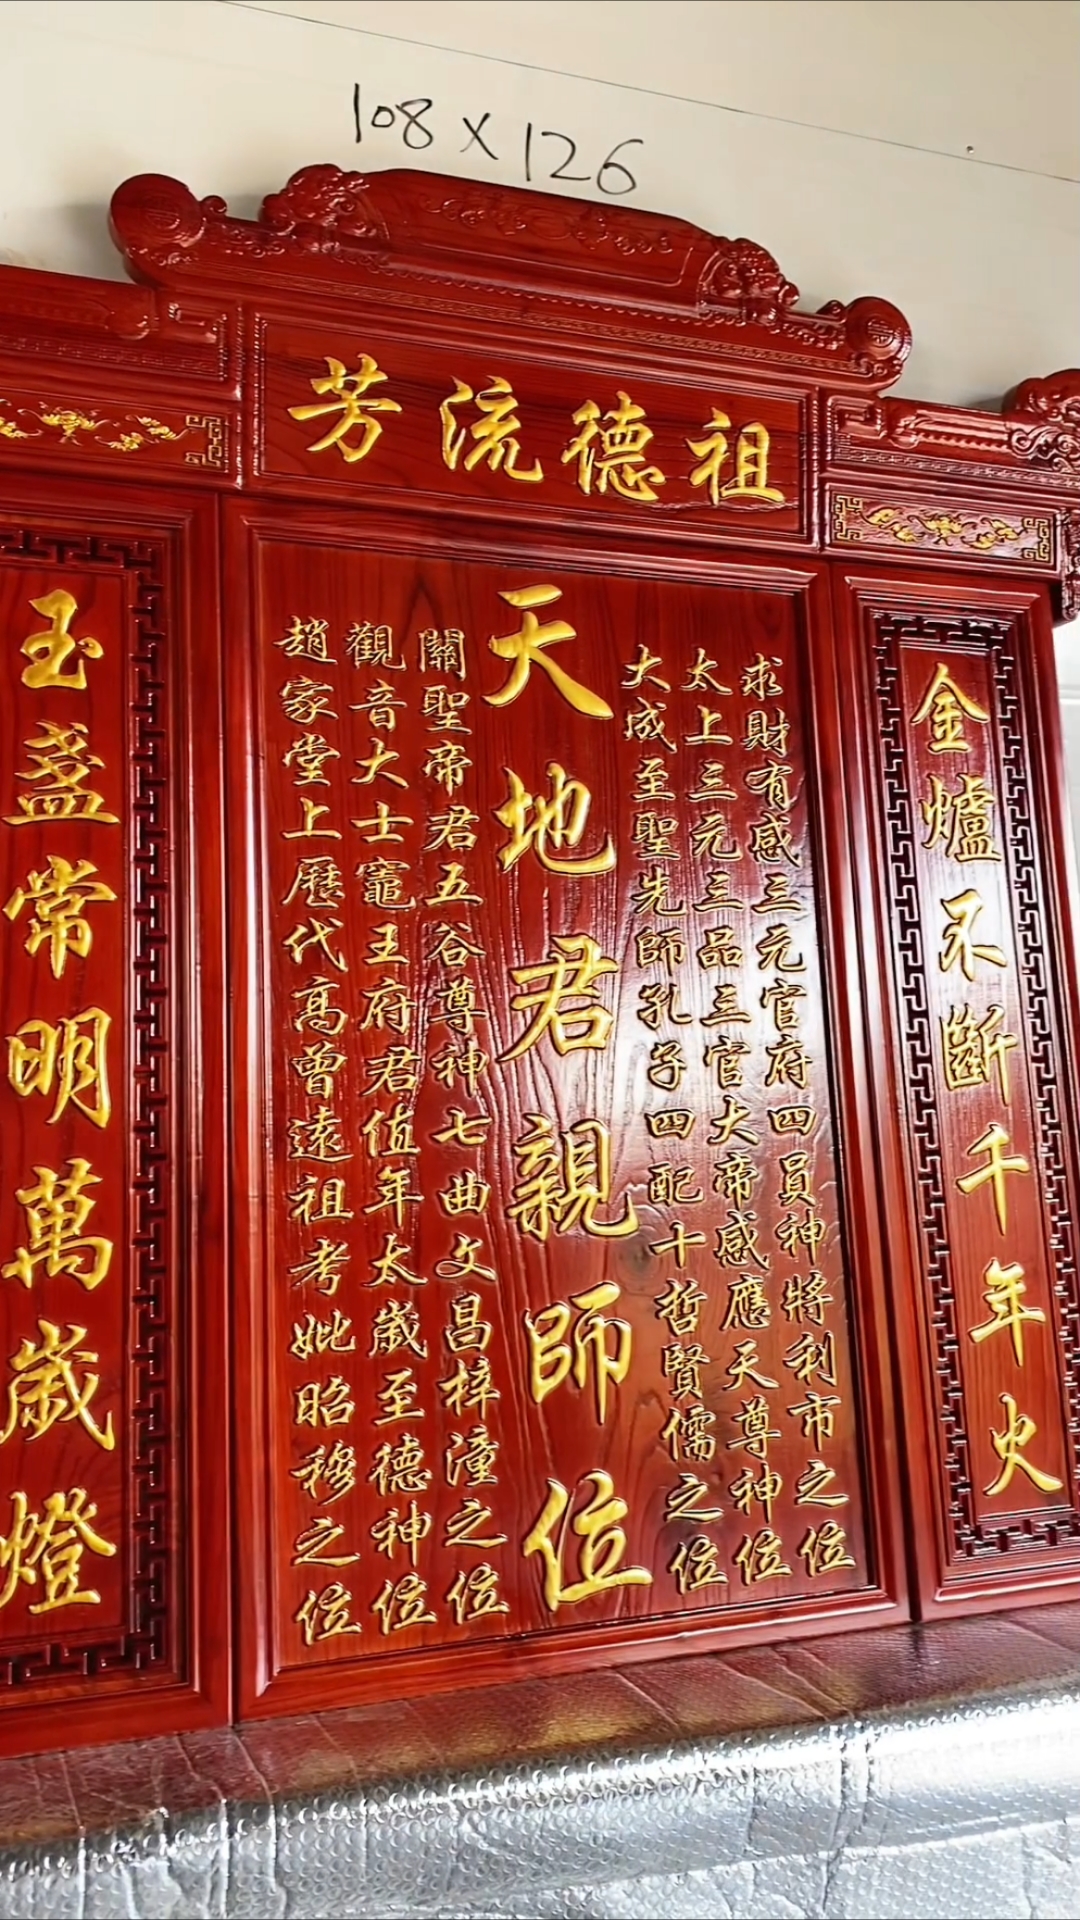 108 x 126
祖德流芳
金爐不斷千年火
求財有感三元官府四員神將利市之位
太上三元三品三官大帝感應天尊神位
大成至聖先師孔子四配十哲賢儒之位
天地君親師位
關聖帝君五谷尊神七曲文昌梓潼之位
觀音大士竈王府君值年太歲至德神位
趙家堂上歷代高曾遠祖考妣昭穆之位
玉盞常明萬歲燈